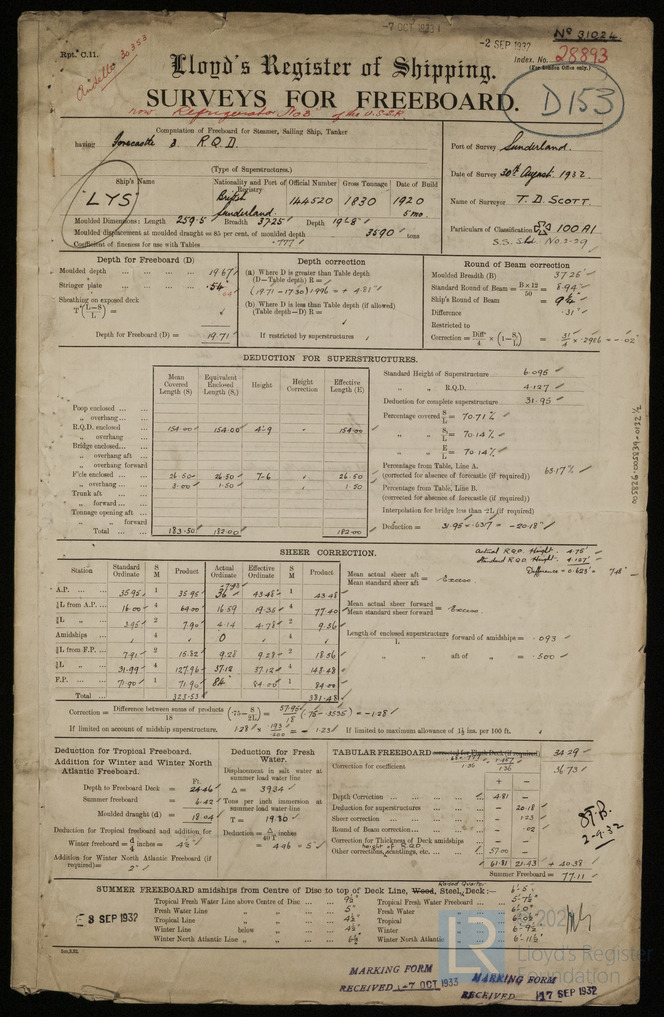 -7 OCT 1933
-2 SEP 1932
Nº 31024
Rpt. C.11.
Index. No. 28893
(For London Office only.)
Lloyd's Register of Shipping.
SURVEYS FOR FREEBOARD.
D153
now "Refrigerator No 3" of the U.S.S.R.
Computation of Freeboard for Steamer, Sailing Ship, Tanker
having Forecastle & R.Q.D.
(Type of Superstructures.)
Port of Survey Sunderland.
Date of Survey 30th August 1932.
Name of Surveyor T. D. SCOTT
Particulars of Classification 100 A1
S.S. Sld. No. 2-29
Ship's Name Nationality and Port of Registry Official Number Gross Tonnage Date of Build
"LYS" British Sunderland. 144520 1830 1920 5 mo.
Moulded Dimensions: Length 259.5 Breadth 37.25 Depth 19.68
Moulded displacement at moulded draught = 85 per cent. of moulded depth 3590 tons
Coefficient of fineness for use with Tables .777
Depth for Freeboard (D)
Moulded depth 19.67
Stringer plate .54
.04
Sheathing on exposed deck
T (L-S / L) =
Depth for Freeboard (D) = 19.71
Depth correction
(a) Where D is greater than Table depth
(D-Table depth) R =
(19.71 - 17.30) 1.996 = + 4.81
(b) Where D is less than Table depth (if allowed)
(Table depth-D) R =
If restricted by superstructures
Round of Beam correction
Moulded Breadth (B) 37.25
Standard Round of Beam = B×12 / 50 = 8.94
Ship's Round of Beam = 9¼
Difference .31
Restricted to
Correction = Diff / 4 × (1 - S₁ / L) = .31 / 4 × .2986 = -.02
DEDUCTION FOR SUPERSTRUCTURES.
Mean Covered Length (S) Equivalent Enclosed Length (S₁) Height Height Correction Effective Length (E)
Poop enclosed
„ overhang
R.Q.D. enclosed 154.00 154.00 4'-9 154.00
„ overhang
Bridge enclosed
„ overhang aft
„ overhang forward
F'cle enclosed 26.50 26.50 7-6 26.50
„ overhang 3.00 1.50 1.50
Trunk aft
„ forward
Tonnage opening aft
„ „ forward
Total 183.50 182.00 182.00
Standard Height of Superstructure 6.095
„ „ R.Q.D. 4.127
Deduction for complete superstructure 31.95
Percentage covered S / L = 70.71%
„ „ S₁ / L = 70.14%
„ „ E / L = 70.14%
Percentage from Table, Line A.
(corrected for absence of forecastle (if required)) 63.17%
Percentage from Table, Line B.
(corrected for absence of forecastle (if required))
Interpolation for bridge less than ·2L (if required)
Deduction = 31.95 × .6317 = -20.18
Actual R.Q.D. Height. 4.75'
Standard R.Q.D. Height. 4.127'
Difference = 0.623'
SHEER CORRECTION.
Station Standard Ordinate S M Product Actual Ordinate Effective Ordinate S M Product
A.P. 35.95 1 35.95 36 43.48 1 43.48
⅙L from A.P. 16.00 4 64.00 16.59 19.35 4 77.40
⅓L „ 3.95 2 7.90 4.14 4.78 2 9.56
Amidships 4 0 4
⅓L from F.P. 7.91 2 15.82 9.28 9.28 2 18.56
⅙L „ 31.99 4 127.96 37.12 37.12 4 148.48
F.P. 71.90 1 71.90 84 84.00 1 84.00
Total 323.53 381.48
Mean actual sheer aft / Mean standard sheer aft = Excess.
Mean actual sheer forward / Mean standard sheer forward = Excess.
Length of enclosed superstructure / L forward of amidships = .093
„ „ aft of „ = .500
Correction = Difference between sums of products / 18 (·75 - S / 2L) = 57.95 / 18 (.75 - .3535) = -1.28
If limited on account of midship superstructure. 1.28 × .193 / .200 = -1.23 If limited to maximum allowance of 1½ ins. per 100 ft.
Deduction for Tropical Freeboard.
Addition for Winter and Winter North Atlantic Freeboard.
Ft.
Depth to Freeboard Deck = 24.46
Summer freeboard = 6.42
Moulded draught (d) = 18.04
Deduction for Tropical freeboard and addition for
Winter freeboard = d / 4 inches = 4½"
Addition for Winter North Atlantic Freeboard (if
required) = 2"
Deduction for Fresh Water.
Displacement in salt water at
summer load water line
Δ = 3924
Tons per inch immersion at
summer load water line
T = 19.80
Deduction = Δ / 40T inches
= 4.96 = 5"
TABULAR FREEBOARD corrected for Flush Deck (if required) 34.29
Correction for coefficient 1.457 / 1.36 36.73
+ -
Depth Correction 4.81 -
Deduction for superstructures - 20.18
Sheer correction - 1.23
Round of Beam correction - .02
Correction for Thickness of Deck amidships - -
Other corrections, scantlings, etc. height of R.Q.D. 57.00 -
61.81 21.43 + 40.38
Summer Freeboard = 77.11
2-9-32
SUMMER FREEBOARD amidships from Centre of Disc to top of Deck Line, Wood, Steel, Raised Quarter Deck:— 6'-5"
Tropical Fresh Water Line above Centre of Disc 9½" Tropical Fresh Water Freeboard 5'-7½"
Fresh Water Line „ „ 5" Fresh Water „ 6'-0"
Tropical Line „ „ 4½" Tropical „ 6'-0½"
Winter Line below „ 4½" Winter „ 6'-9½"
Winter North Atlantic Line „ „ 6½" Winter North Atlantic „ 6'-11½"
8 SEP 1932
MARKING FORM
RECEIVED -7 OCT 1933
MARKING FORM
RECEIVED 17 SEP 1932
LR
Lloyd's Register
Foundation